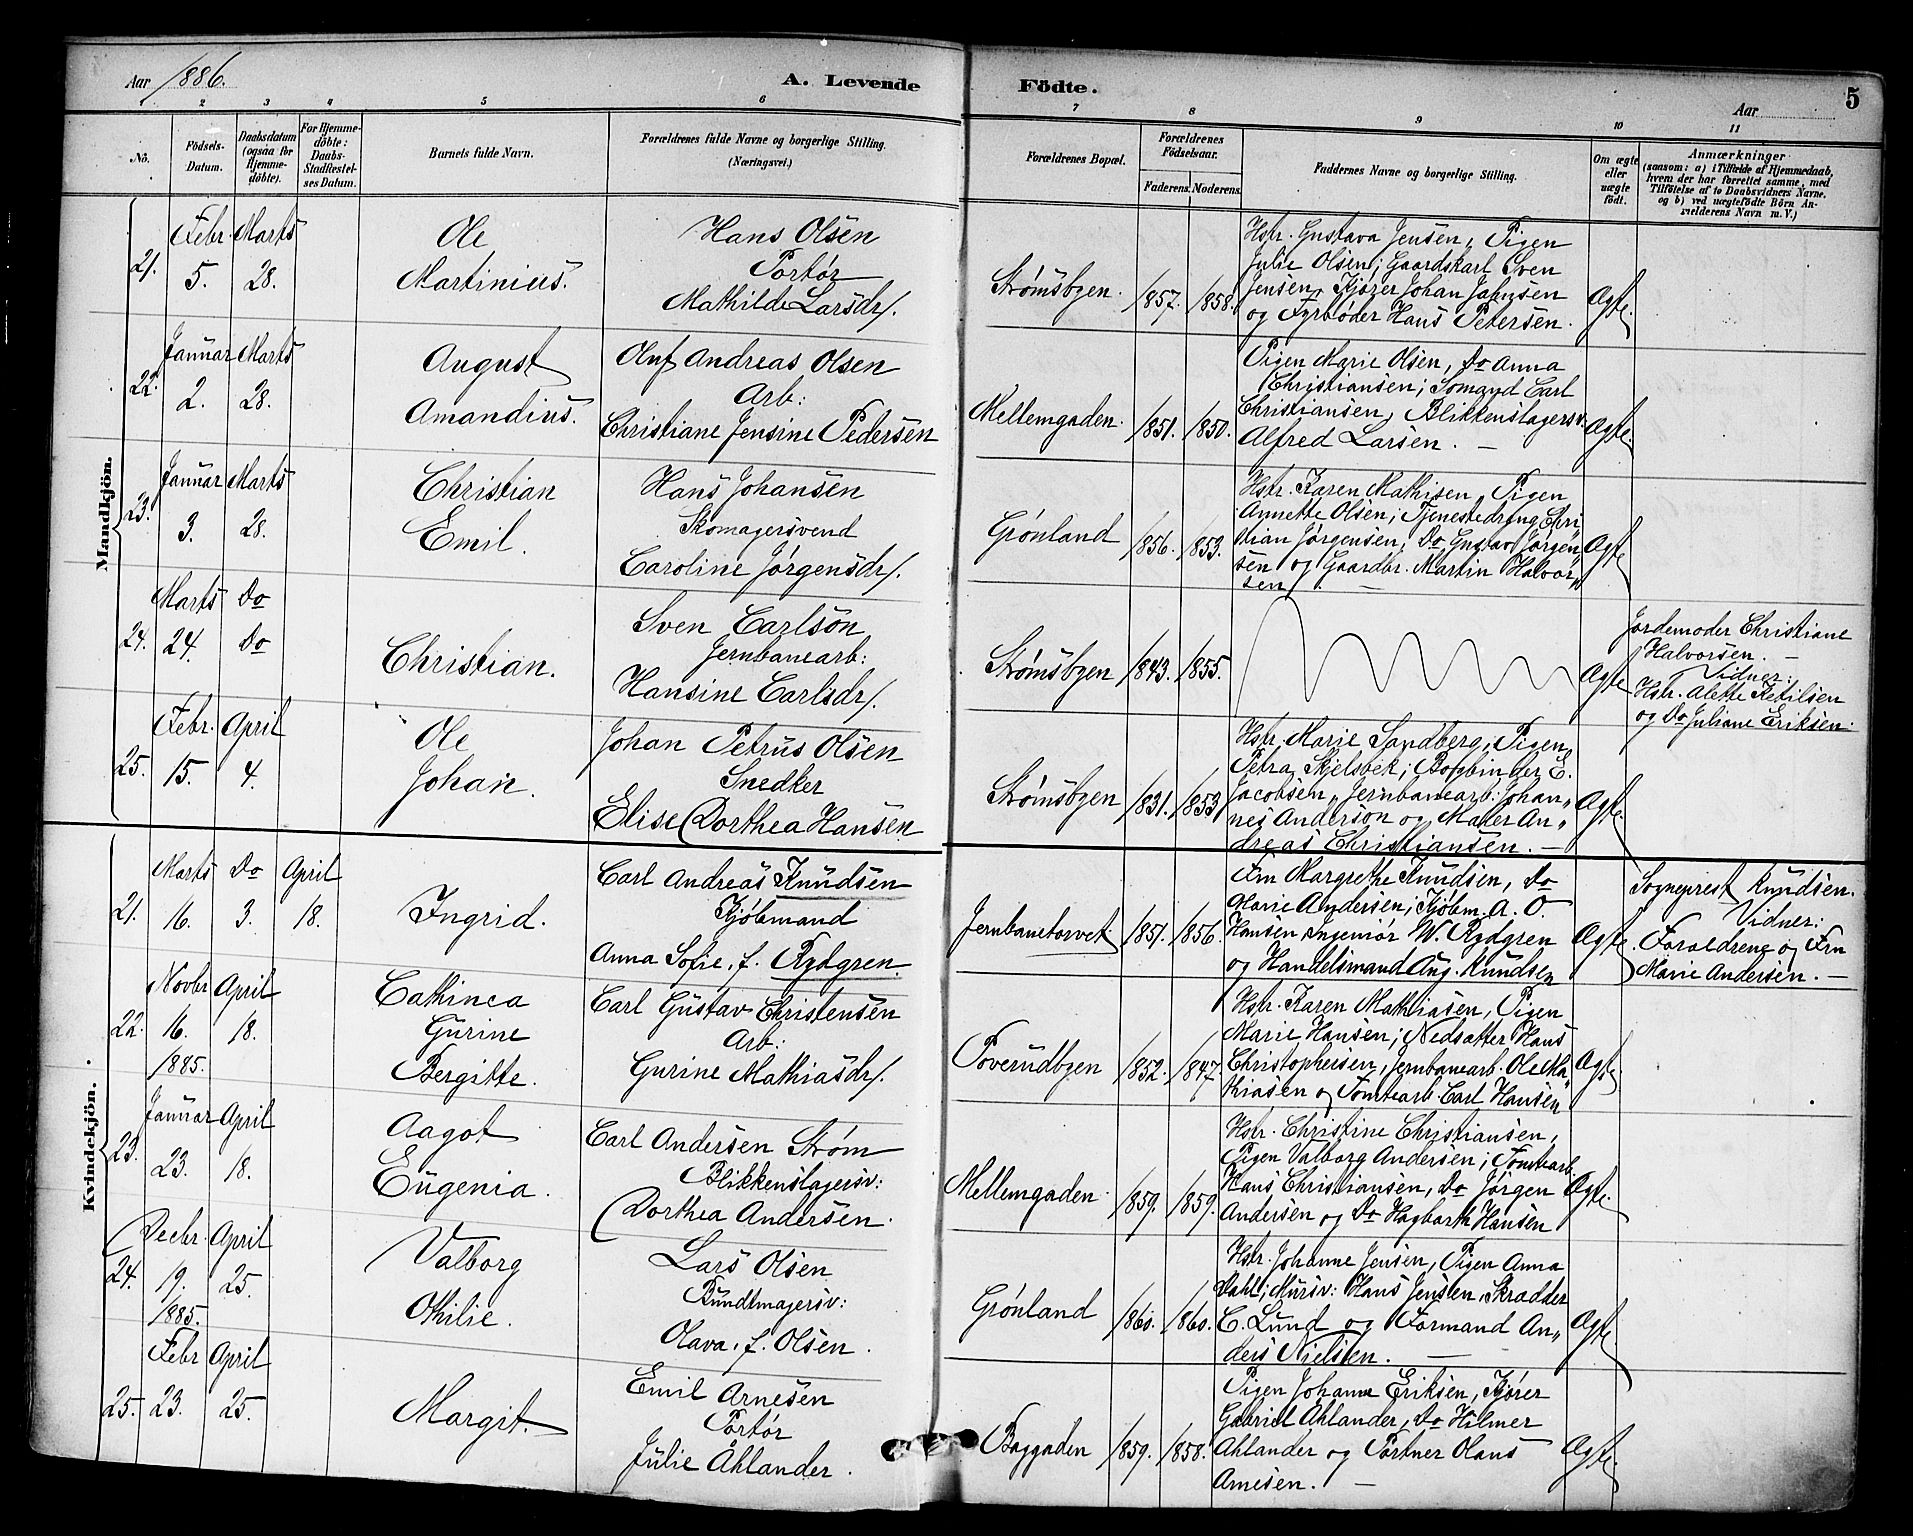 Aar 1886.
A. Levende Födte.
Aar
5
1 2 3 4 5 6 7 8 9 10 11
No.
Födsels-Datum.
Daabsdatum (ogsaa for Hjemme-döbte).
For Hjemme-döbte: Daabs-Stadfæstel-ses Datum.
Barnets fulde Navn.
Forældrenes fulde Navne og borgerlige Stilling. (Næringsvei.)
Forældrenes Bopæl.
Forældrenes Födselsaar.
Faderens. Moderens.
Faddernes Navne og borgerlige Stilling.
Om ægte eller uægte födt.
Anmærkninger
(saasom: a) i Tilfælde af Hjemmedaab, hvem der har forrettet samme, med Tilföielse af to Daabsvidners Navne, og b) ved uægtefödte Börn An-melderens Navn m.V.)
Mandkjön.
21.
Febr. 5.
Marts 28.
Ole
Martinius.
Hans Olsen
Portør
Mathilde Larsdr.
Strømsbyen
1857. 1858.
Hstr. Gustava Jensen, Pigen
Julie Olsen; Gaardskarl Sven
Jensen, Kjører Johan Johnsen
og Fyrbøder Hans Petersen.
Ægte.
22.
Januar 2.
Marts 28.
August
Amandius.
Oluf Andreas Olsen
Arb:
Christiane Jensine Pedersen
Mellemgaden.
1851. 1850.
Pigen Marie Olsen, Do Anna
Christiansen; Sømand Carl
Christiansen, Blikkenslagersv.
Alfred Larsen. —
Ægte.
23.
Januar 3.
Marts 28.
Christian
Emil.
Hans Johansen
Skomagersvend
Caroline Jørgensdr.
Grønland
1856. 1853.
Hstr. Karen Mathisen, Pigen
Annette Olsen; Tjenestedreng Chri
stian Jørgensen, Do Gustav Jørgen
sen og Gaardbr. Martin Halvor
sen
Ægte
24.
Marts 24.
Do Do
Christian.
Sven Carlson
Jernbanearb:
Hansine Carlsdr.
Strømsbyen
1843. 1855.
Ægte
Jordemoder Christiane
Halvorsen. —
Vidner:
Hstr. Alette Ketilsen
og Do Juliane Eriksen.
25.
Febr. 15.
April 4.
Ole
Johan.
Johan Petrus Olsen
Snedker
Elise Dorthea Hansen
Strømsbyen
1831. 1853
Hstr. Marie Sandberg, Pigen
Petra Skjelsbek; Bogbinder E.
Jacobsen, Jernbanearb: Johan„
nes Anderson og Maler An„
dreas Christiansen. —
Ægte.
Kvindekjön.
21.
Marts 16.
Do 3.
April 18.
Ingrid.
Carl Andreas Knudsen
Kjøbmand
Anna Sofie, f. Rydgren.
Jernbanetorvet
1851. 1856.
Fru Margrethe Knudsen, Do
Marie Andersen; Kjøbm. A. O.
Hansen Ingeniør W. Rydgren
og Handelsmand Aug. Knudsen
Ægte
Sogneprest Knudsen.
Vidner:
Forældrene og Fru
Marie Andersen. —
22.
Novbr 16. 1885.
April 18.
Cathinca
Gurine
Bergitte.
Carl Gustav Christensen
Arb:
Gurine Mathiasdr.
Toverudbyen
1852. 1847.
Hstr. Karen Mathiasen, Pigen
Marie Hansen; Nedsætter Hans
Christophersen, Jernbanearb. Ole Ma
thiasen og Tomtearb. Carl Hansen
Ægte
23.
Januar 23.
April 18.
Aagot
Eugenia.
Carl Andersen Strøm
Blikkenslagersv:
Dorthea Andersen.
Mellemgaden
1859. 1859.
Hstr. Christine Christiansen,
Pigen Valborg Andersen; Tomtearb.
Hans Christiansen, Do Jørgen
Andersen og Do Hagbarth Hansen
Ægte.
24.
Decbr. 19. 1885.
April 25.
Valborg
Othilie.
Lars Olsen
Bundtmagersv:
Olava, f. Olsen.
Grønland
1860. 1860.
Hstr. Johanne Jensen, Pigen Anna
Dahl; Mursv: Hans Jensen, Skrædder
C. Lund og Formand An„
ders Nielsen. —
Ægte
25.
Febr 23.
April 25.
Margit.
Emil Arnesen
Portør
Julie Åhlander.
Baggaden
1859. 1858.
Pigen Johanne Eriksen, Kjører
Gabriel Ahlander, Do Hilmer
Ahlander og Portner Olaus
Arnesen. —
Ægte